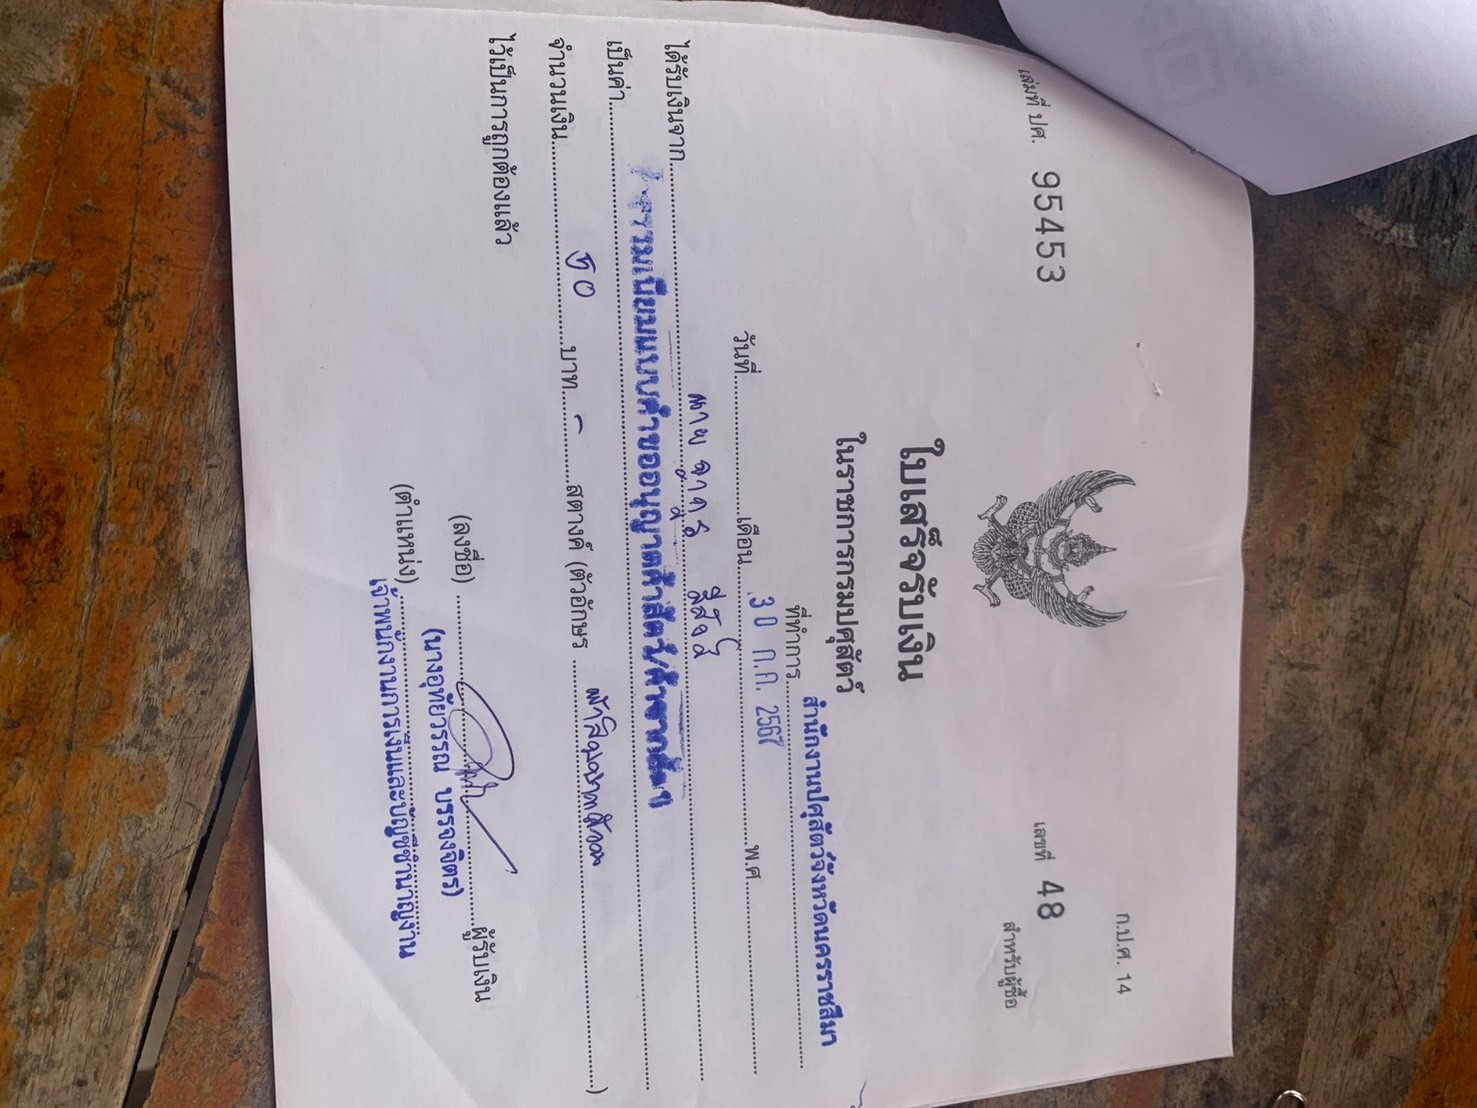 ก.ป.ศ. 14
เล่มที่ ปศ. 95453 เลขที่ 48
สำหรับผู้ซื้อ
ใบเสร็จรับเงิน
ในราชการกรมปศุสัตว์
ที่ทำการ สำนักงานปศุสัตว์จังหวัดนครราชสีมา
วันที่ เดือน 30 ก.ค. 2567 พ.ศ.
ได้รับเงินจาก นาย
เป็นค่า
จำนวนเงิน บาท - สตางค์ (ตัวอักษร )
ไว้เป็นการถูกต้องแล้ว
(ลงชื่อ) ผู้รับเงิน
(นางอุทัยวรรณ บรรจงจิตร)
(ตำแหน่ง) เจ้าพนักงานการเงินและบัญชีชำนาญงาน